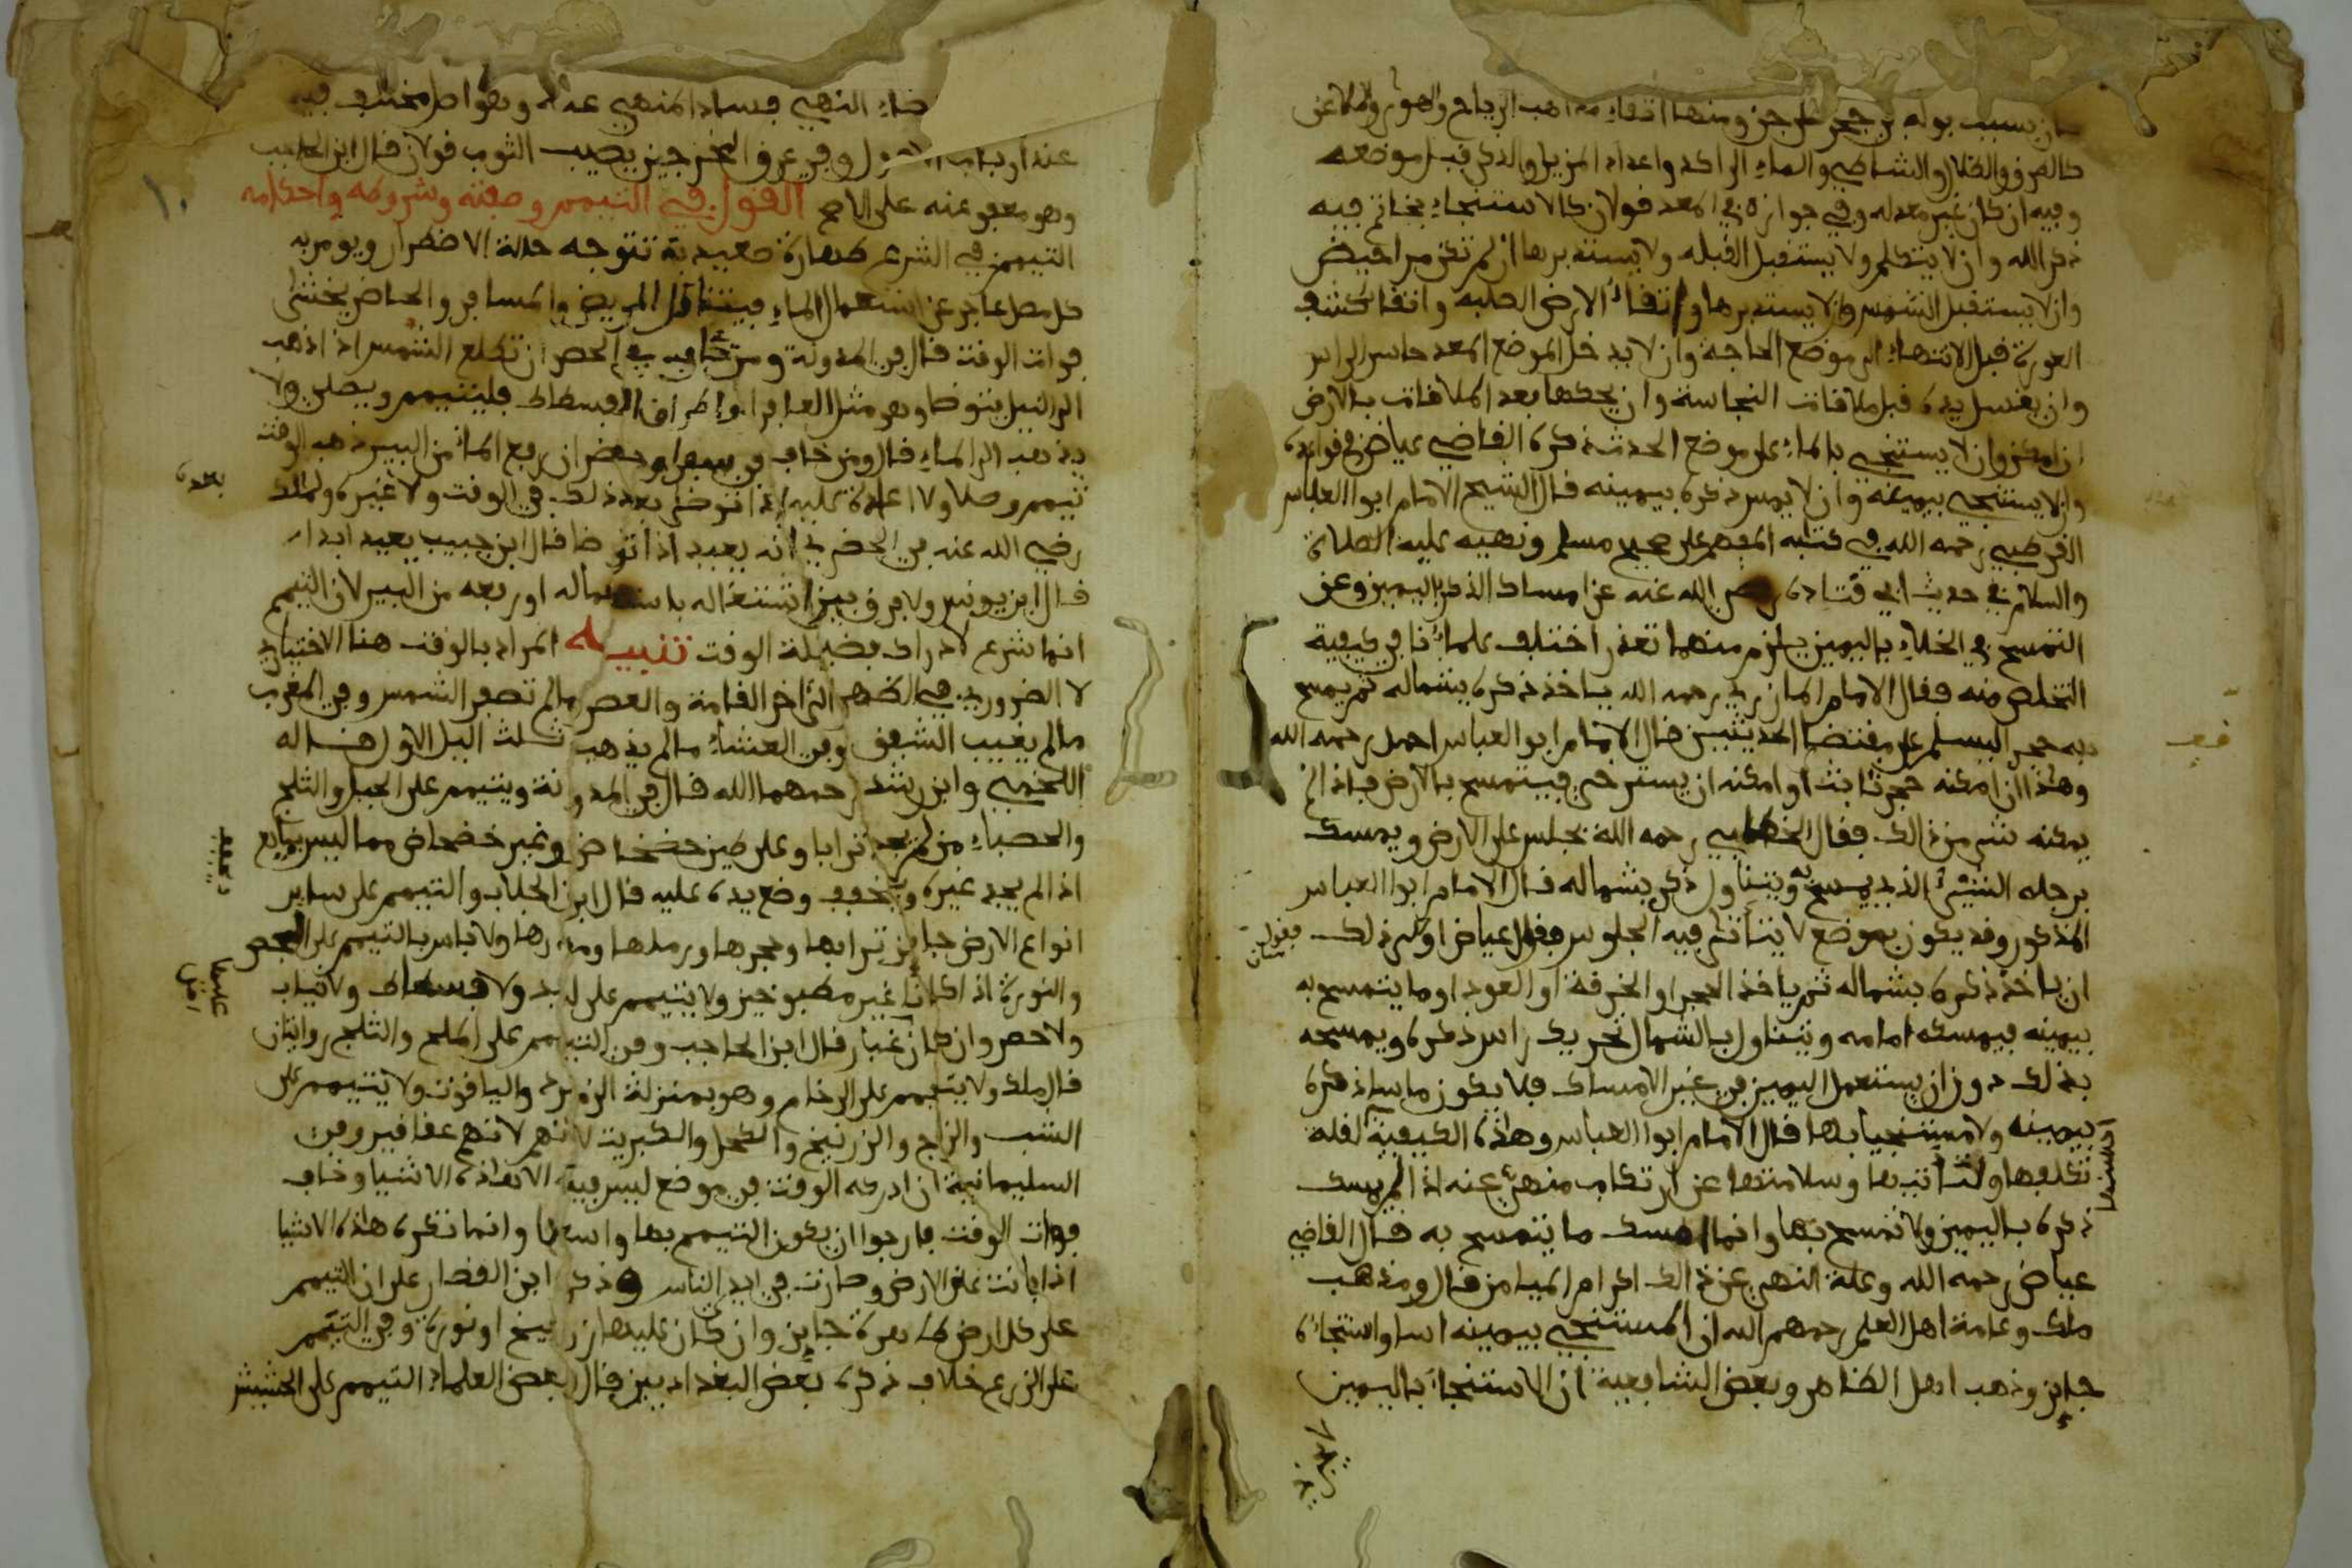 كان بسبب بوله في جحر على جن ومنها اتقاء مهاهب الرياح والهوى والملاعن
كالطرق والظلال والشاطي والماء الراكد واعداد المزيل والذكر قبل موضعه
وفيه ان كان غير معد له وفي جوازه في المعد قولان كالاستنجاء بخاتم فيه
ذكر الله وان لا يتكلم ولا يستقبل القبله ولا يستدبرها ان لم تكن مراحيض
وان لا يستقبل الشمس ولا يستدبرها واتقاء الارض الصلبه واتقا كشف
العورة قبل الانتهاء الى موضع الحاجة وان لا يدخل الموضع المعد حاسر الراس
وان يغسل يده قبل ملاقات النجاسة وان يحكها بعد الملاقات بالارض
ان امكن وان لا يستنجي بالماء على موضع الحدث ذكره القاضي عياض في قواعده
وان لا يستنجي بيمينه وان لا يمس ذكره بيمينه قال الشيخ الامام ابوا العباس
القرطبي رحمه الله في كتابه المفهم على صحيح مسلم ونهيه عليه الصلاة
والسلام في حديث ابي قتاده رضي الله عنه عن امساك الذكر باليمين وعن
التمسح في الخلاء باليمين يلزم منهما تعذر اختلف علماؤنا في كيفية
التخلص منه فقال الامام المازري رحمه الله ياخذ ذكره بشماله ثم يمسح
به حجرا ليسلم على مقتضى الحديثين قال الامام ابو العباس احمد رحمه الله
وهذا ان امكنه حجر ثابت او امكنه ان يسترخي فيتمسح بالارض فاذا لم
يمكنه شي من ذالك فقال الخطابي رحمه الله يجلس على الارض ويمسك
برجله الشيء الذي يمسح به ويتناول ذكره بشماله قال الامام ابوا العباس
المذكور وقد يكون بموضع لا يتأتى فيه الجلوس فقول عياض اولى ذلك
ان ياخذ ذكره بشماله ثم ياخذ الحجر او الخرقة او العود او ما يتمسح به
بيمينه فيمسكه امامه ويتناول بالشمال تحريك راس ذكره ويمسحه
بذلك دون ان يستعمل اليمين في غير الامساك فلا يكون ماسا ذكره
بيمينه ولا مستنجيا بها قال الامام ابوا العباس وهذه الكيفية لقلة
تكلفها ولتأتيها وسلامتها عن ارتكاب منهي عنه اذا لم يمسك
ذكره باليمين ولا تمسح بها وانما امسك ما يتمسح به قال القاضي
عياض رحمه الله وعلة النهي عن ذالك اكرام الميامن قال ومذهب
ملك وعامة اهل العلم رحمهم الله ان المستنجي بيمينه اسا واستنجاؤه
جايز وذهب اهل الظاهر وبعض الشافعية ان الاستنجاء باليمين
فقول
احسنها
النهي فساد المنهي عنه وهو اصل مختلف فيه
عند ارباب الاصول وفي عرق المخرجين يصيب الثوب قولان قال ابن الحاجب
وهو معفو عنه على الاصح القول في التيمم وصفته وشروطه واحكامه
التيمم في الشرع طهارة صعيدية تتوجه حالة الاضطرار ويومر به
كل مصل عاجز عن استعمال الماء فيتناول المريض والمسافر والحاضر يخشى
فوات الوقت قال في المدونة ومن خاف في الحضر ان تطلع الشمس اذا ذهب
الى النيل يتوضا وهو مثل المعافر او اطراف الفسطاط فليتيمم ويصلي ولا
يذهب الى الماء قال ومن خاف في سفر او حضر ان رفع الماء من البير ذهب الوقت
تيمم وصلا ولا اعادة عليه اذا توضى بعد ذلك في الوقت ولا غيره ولمالك
رضي الله عنه في الحضري انه يعيد اذا توضا قال ابن حبيب يعيد ابدا
قال ابن يونس ولا فرق بين اشتغاله باستعماله او رفعه من البير لان التيمم
انما شرع لادراك فضيلة الوقت تنبيه المراد بالوقت هنا الاختياري
لا الضروري في الظهر الى اخر القامة والعصر ما لم تصفر الشمس وفي المغرب
ما لم يغيب الشفق وفي العشاء ما لم يذهب ثلث اليل الاول قاله
اللخمي وابن رشد رحمهما الله قال في المدونة ويتيمم على الجبل والثلج
والحصباء من لم يجد ترابا وعلى طين خضخاض وغير خضخاض مما ليس بمايع
اذا لم يجد غيره ويخفف وضع يده عليه قال ابن الجلاب والتيمم على ساير
انواع الارض جايز ترابها وحجرها ورملها ومدرها ولا باس بالتيمم على الجص
والنورة اذا كانا غير مطبوخين ولا يتيمم على لبد ولا فسطاط ولا ثياب
ولا حصر وان كان غبار قال ابن الحاجب وفي التيمم على الملح والثلج روايتان
قال ملك ولا يتيمم على الرخام وهو بمنزلة الزمرد والياقوت ولا يتيمم على
الشب والزاج والزرنيخ والكحل والكبريت لانهم لانهم عقاقير وفي
السليمانية ان ادركه الوقت في موضع ليس فيه الا هذه الاشيا وخاف
فوات الوقت فارجوا ان يكون التيمم بها واسعا وانما تكره هذه الاشيا
اذا بانت على الارض وصارت في ايدي الناس وذكر ابن القصار على ان التيمم
على كل ارض طاهرة جايز وان كان عليها زرنيخ او نورة وفي التيمم
على الزرع خلاف ذكره بعض البغداديين قال بعض العلماء التيمم على الحشيش
بعده